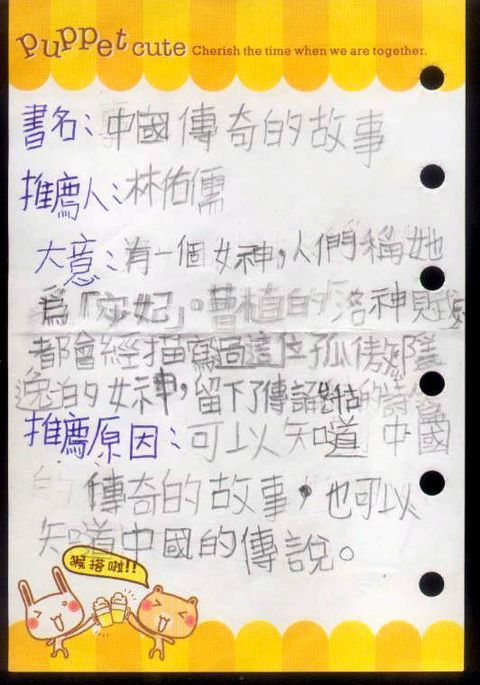 Puppet cute Cherish the time when we are together.
書名：中國傳奇的故事
推薦人：林佑儒
大意：有一個女神，人們稱她
為「宓妃」。曹植的洛神賦
都會經描寫過這位孤傲
逸的女神，留下了傳誦的詩篇
推薦原因：可以知道 中國
的 傳奇的故事，也可以
知道中國的傳說。
猴搭啦!!